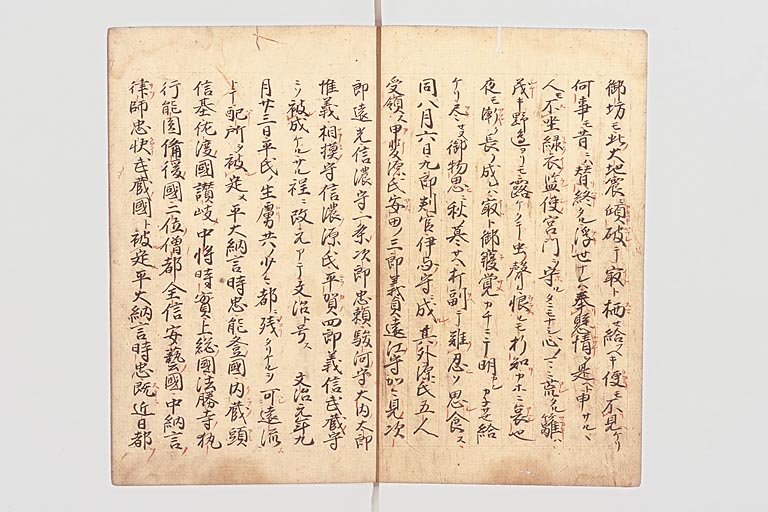 御坊モ此大地震ニ頽破テ取ト栖セ給ヘキ便モ不見ケリ
何事モ昔ニハ替終ヌル浮世ナレハ奉懸情ヲ是ト申サルヽ
人モ不坐緑衣監使宮門ヲ守ルタニモナシ心ノマヽニ荒タル籬ハ
茂キ野邊ヨリモ露ケクテ虫聲恨ルモ折知カホニ哀也
夜モ漸ノ長ノ成ハ最ト御寢覚カチニテ明シカテサセ給
ケリ尽セヌ御物思ニ秋ノ哀サヘ打副テ難忍ソ思食ス
同八月六日九郎判官伊与守成ル其外源氏五人
受領ス甲斐源氏安田ノ三郎義貞遠江守加々見次
郎遠光信濃守一条次郎忠頼駿河守大内太郎
惟義相模守信濃源氏平賀四郎義信武蔵守
ニソ被成ケルサル程ニ改元アテ文治ト号ス 文治元年九
月廿三日平氏ノ生虜共少々都ニ残リタリケルヲ可遠流
トテ配所ヲ被定メ平大納言時忠能登國内蔵頭
信基佐渡國讃岐中将時實上総國法勝寺執
行能圓備後國二位僧都全信安藝國中納言
律師忠快武蔵國ト被定平大納言時忠既近日都